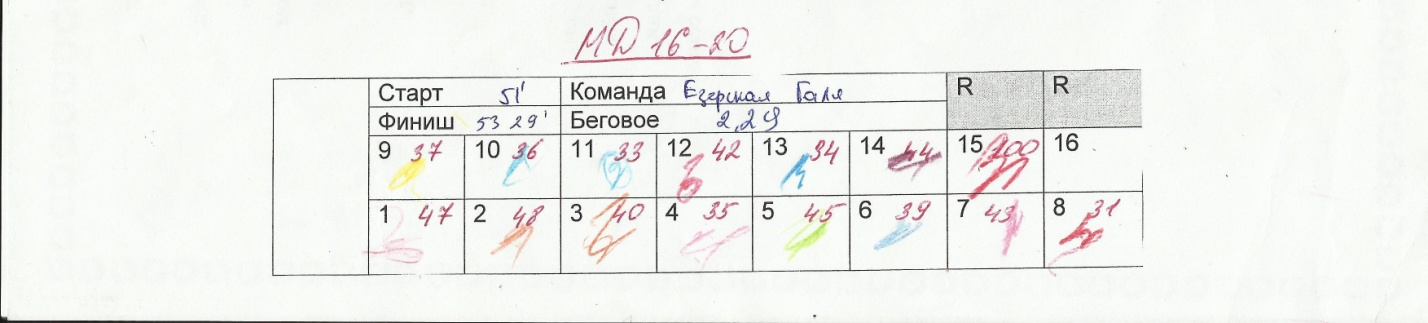 МД 16-20
Старт 51' Команда Езерская Галя R R
Финиш 53 29' Беговое 2,29
9 37 10 36 11 33 12 42 13 34 14 44 15 100 16
1 47 2 48 3 40 4 35 5 45 6 39 7 43 8 31